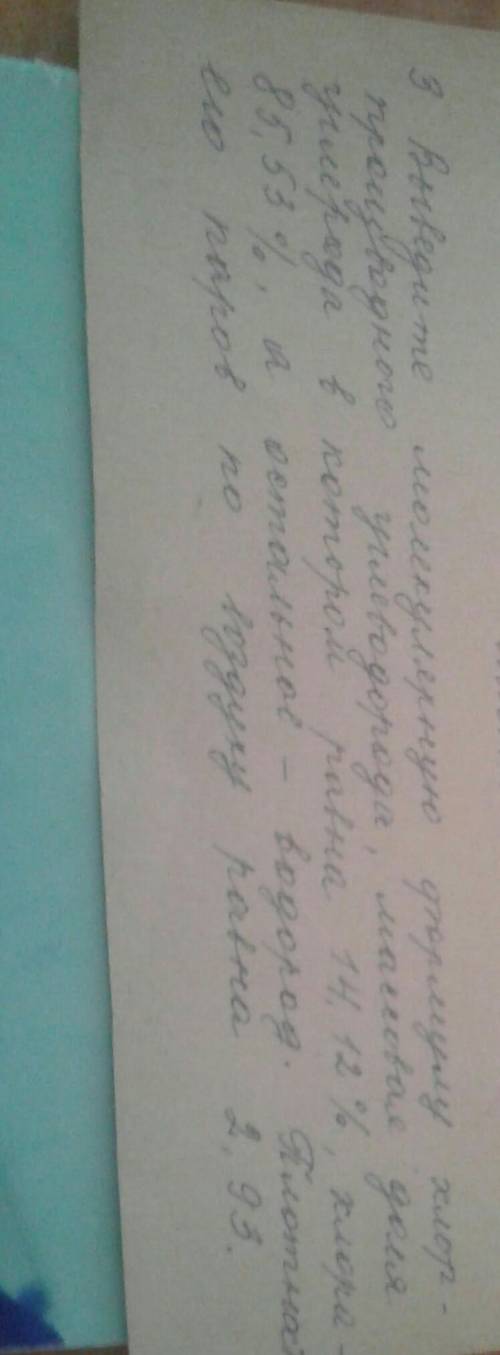 3 Выведите молекулярную формулу хлор-
производного углеводорода, массовая доля
углерода в котором равна 14,12%, хлора-
83,53%, а остальное - водород. Плотность
его паров по воздуху равна 2,93.